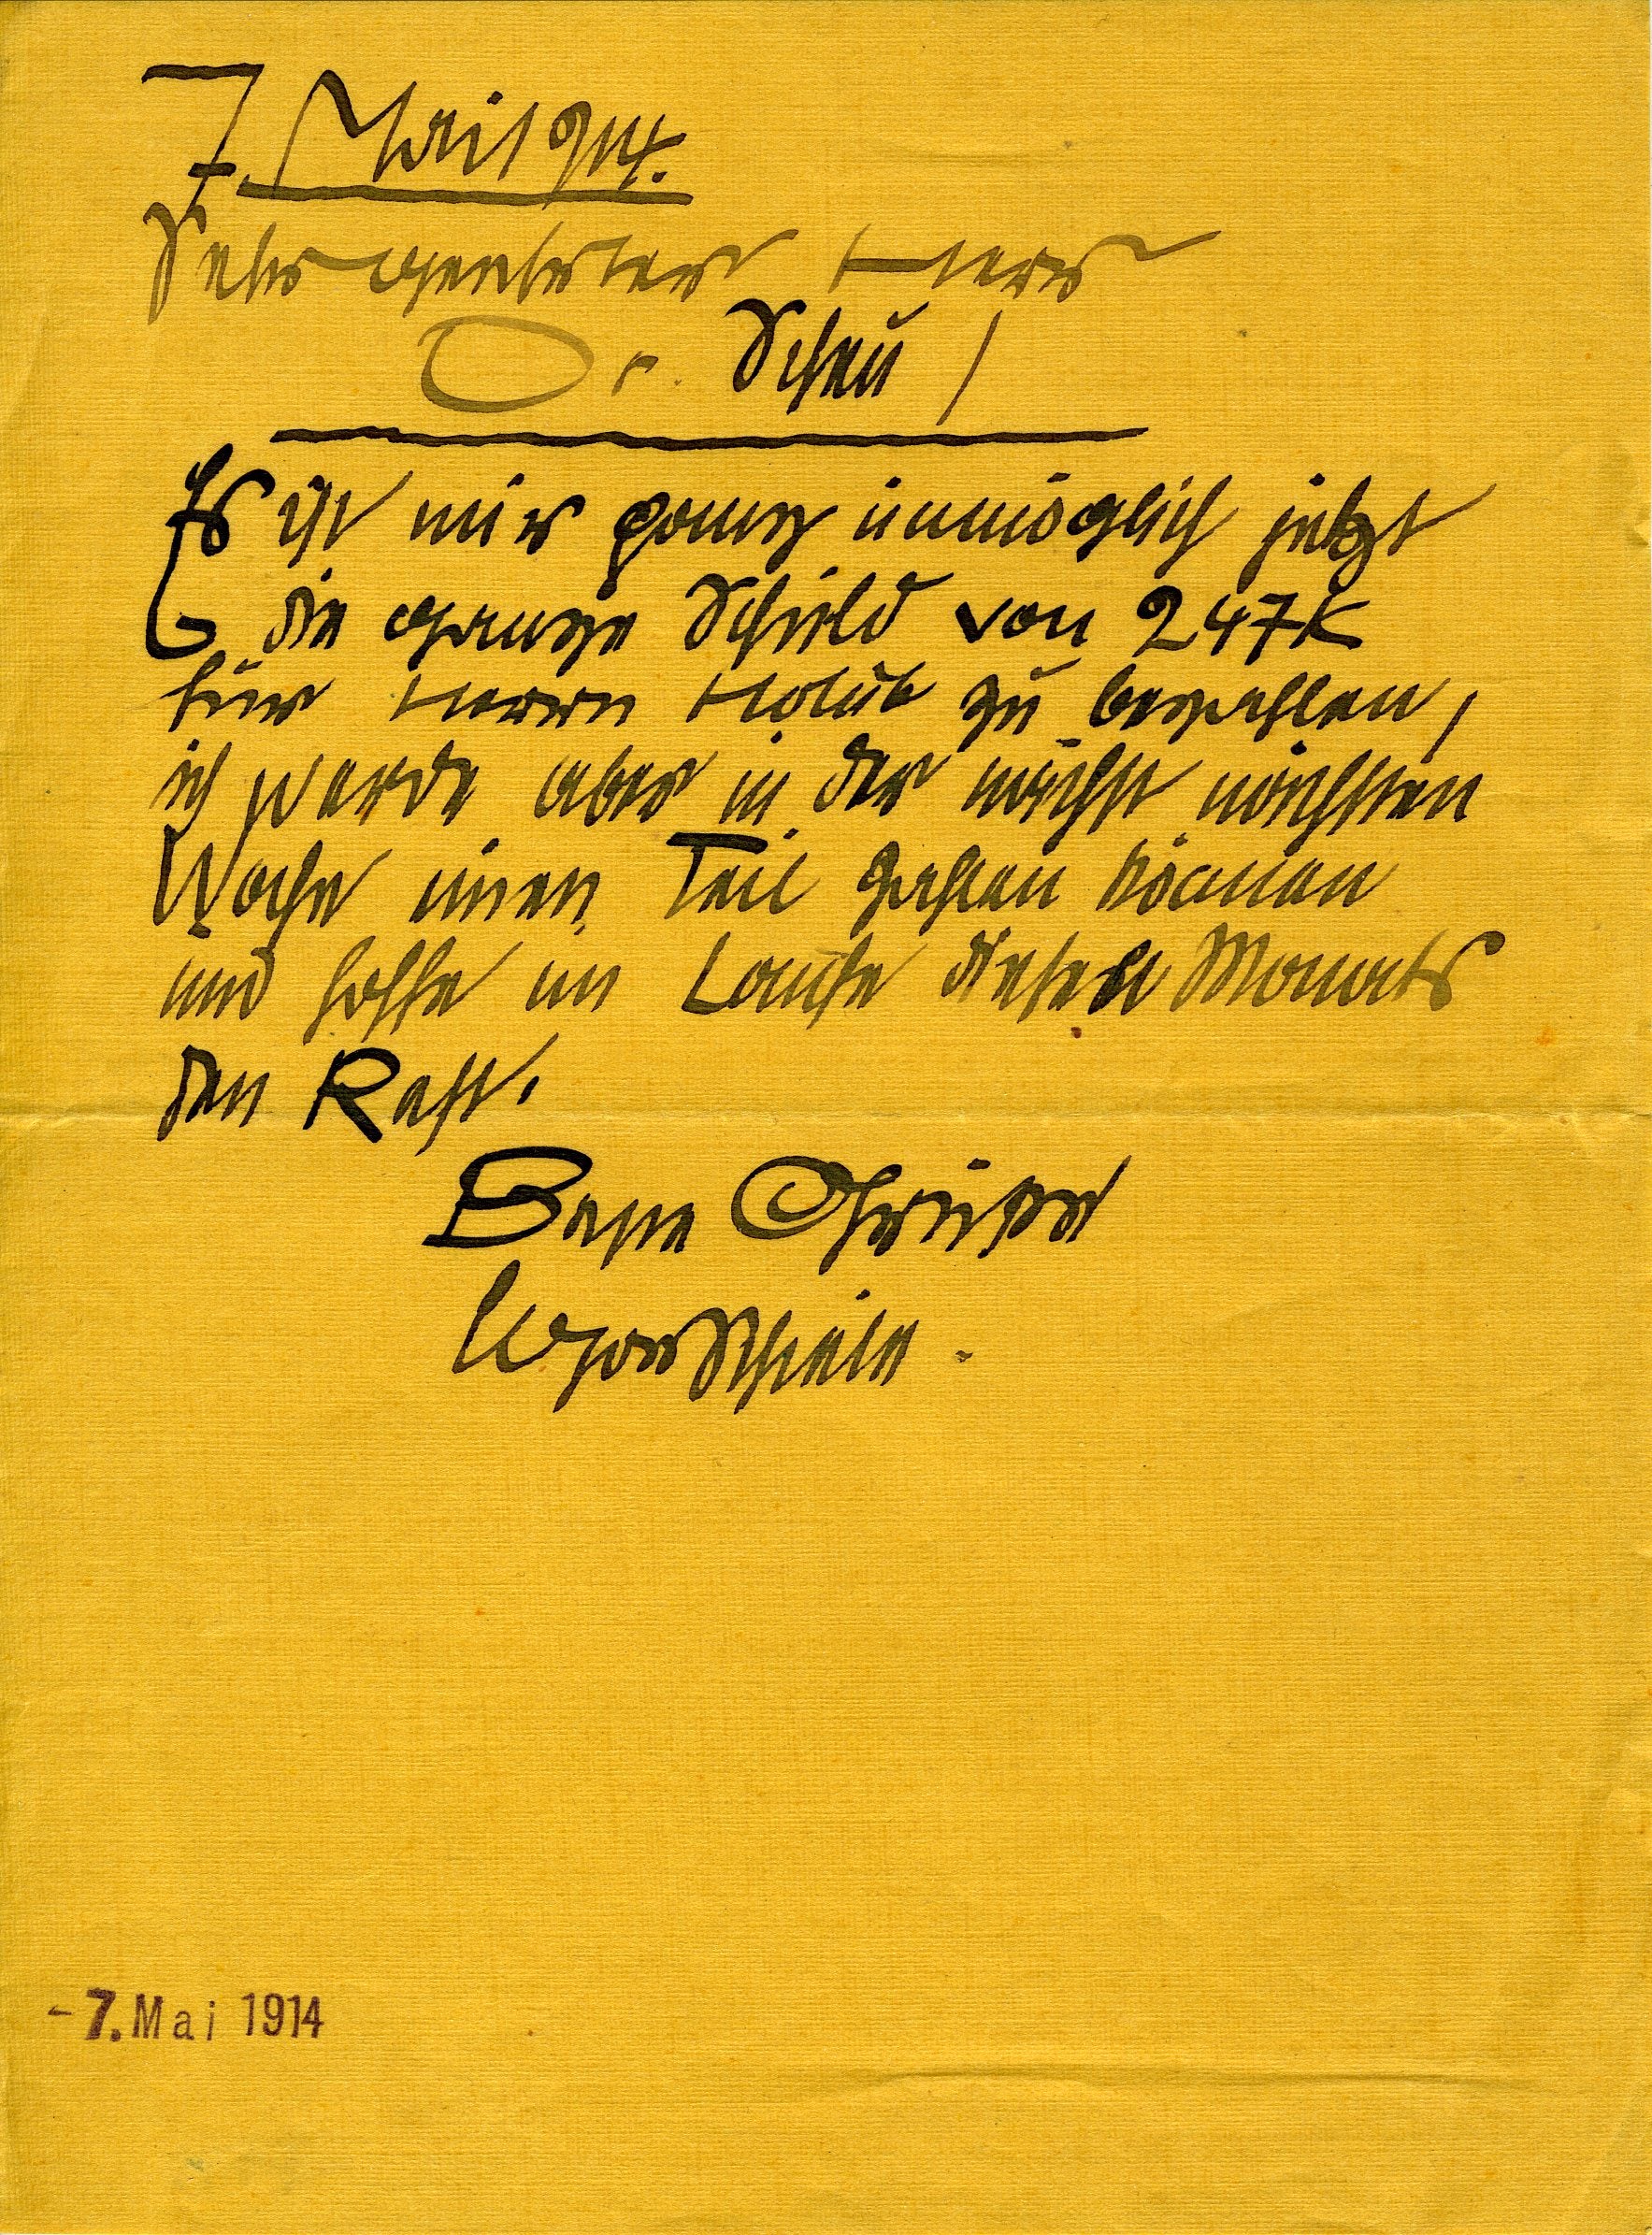 7. Mai 1914.
Sehr geehrter Herr
Dr. Scheu /
Es ist mir ganz unmöglich jetzt
die ganze Schuld von 247K
für Herrn Holub zu bezahlen,
ich werde aber in der nächst nächsten
Woche einen Teil zahlen können
und hoffe im Laufe dieses Monats
den Rest.
Beste Grüsse
Egon Schiele.
- 7. Mai 1914